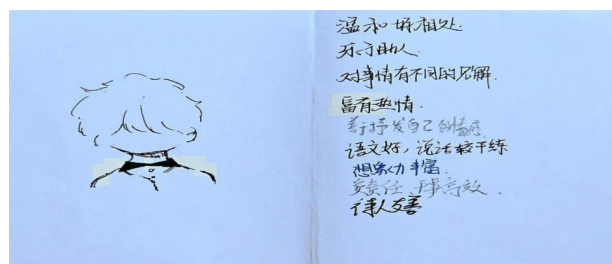 温和好相处
乐于助人.
对事情有不同的见解.
富有热情.
善于抒发自己的情感
语文好，说话较干练
想象力丰富
负责任、办事高效.
待人友善